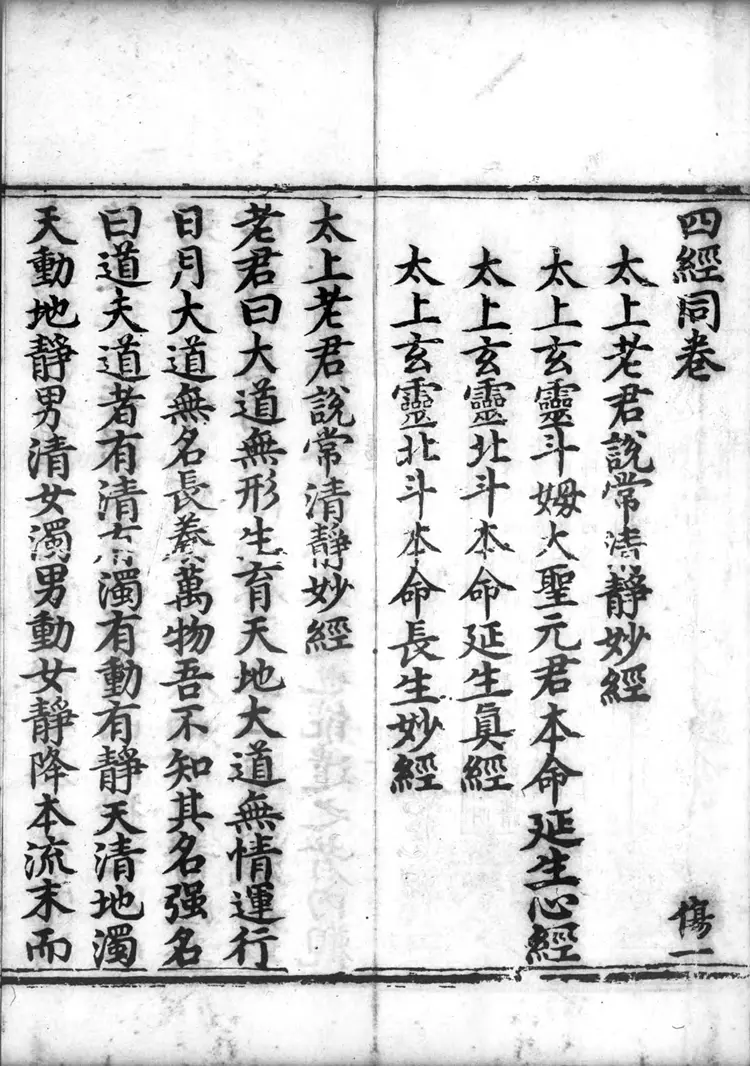 四經同卷
傷一
太上老君說常清靜妙經
太上玄靈斗姆大聖元君本命延生心經
太上玄靈北斗本命延生眞經
太上玄靈北斗本命長生妙經
太上老君說常清靜妙經
老君曰大道無形生育天地大道無情運行
日月大道無名長養萬物吾不知其名强名
曰道夫道者有清有濁有動有靜天清地濁
天動地靜男清女濁男動女靜降本流末而